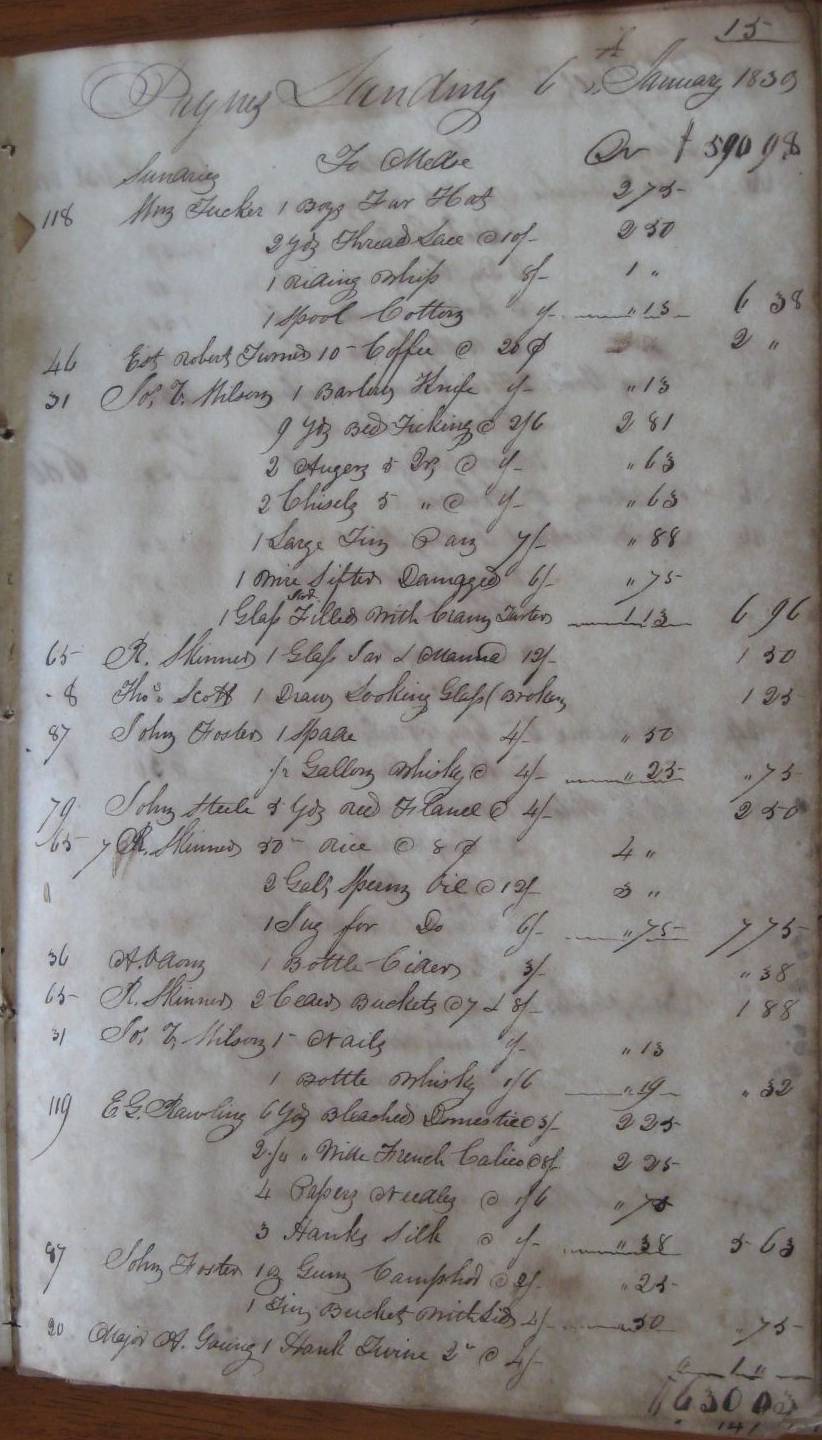 15
Paynes Landing 6 th January 1839
Sundries To Mdse Dr $ 590 98
118 Wm Tucker 1 Boys Fur Hat 2 75
2 Yds Thread Lace @ 10/- 2 50
1 Riding Whip 8/- 1 "
1 Spool Cotton 1/- " 13 6 38
46 Est Robert Turner 10 - Coffee @ 20 ¢ 2 "
31 Jos. T. Wilson 1 Barlow Knife 1/- " 13
9 Yds Bed Ticking @ 2/6 2 81
2 Augers 5 Qrs @ 1/- " 63
2 Chisels 5 " @ 1/- " 63
1 Large Tin Pan 7/- " 88
1 Wire Sifter Damaged 6/- " 75
1 Glass Filled With Cream Tarter 1 13 6 96
65 R. Skinner 1 Glass Jar & Manna 12/- 1 50
8 Thos. Scott 1 Draw Looking Glass (Broken 1 25
87 John Foster 1 Spade 4/- " 50
1/2 Gallon Whisky @ 4/- " 25 " 75
79 John Steele 5 Yds Red Flanel @ 4/- 2 50
65 R. Skinner 50 - Rice @ 8 ¢ 4 "
2 Gals Sperm Oil @ 12/- 3 "
1 Jug for Do 6/- " 75 7 75
36 1 Bottle Cider 3/- " 38
65 R. Skinner 2 Cedar Buckets @ 7 & 8/- 1 88
31 Jos. T. Wilson 1 - Nails 1/- " 13
1 Bottle Whisky 1/6 " 19 " 32
119 E G. Rawling 6 Yds Bleached Domestic @ 3/- 2 25
2 1/4 " Wide French Calico @ 8/- 2 25
4 Papers Needles @ 1/6 " 75
3 Hanks Silk @ 1/- " 38 5 63
87 John Foster 1 oz Gum Camphor @ 2/- " 25
1 Tin Bucket With Lid 4/- " 50 " 75
20 Major A. Young 1 Hank Twine 2 " @ 4/- " 1 "
$ 630 03